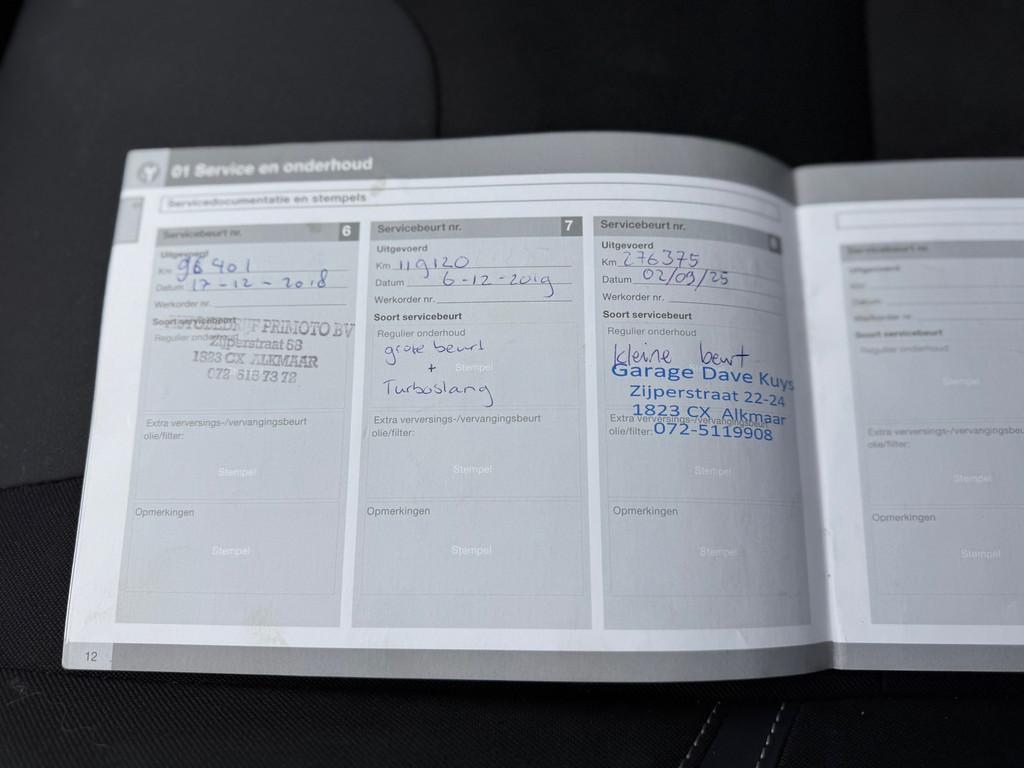 01 Service en onderhoud
Servicedocumentatie en stempels
Servicebeurt nr. 6
Uitgevoerd
Km 96401
Datum 17-12-2018
Werkorder nr.
Soort servicebeurt
Regulier onderhoud
PRIMOTO BV
Zijperstraat 53
1823 CX ALKMAAR
072-515 73 72
Extra verversings-/vervangingsbeurt
olie/filter:
Stempel
Opmerkingen
Stempel
12
Servicebeurt nr. 7
Uitgevoerd
Km 119120
Datum 6-12-2019
Werkorder nr.
Soort servicebeurt
Regulier onderhoud
grote beurt
Stempel
+
Turboslang
Extra verversings-/vervangingsbeurt
olie/filter:
Stempel
Opmerkingen
Stempel
Servicebeurt nr. 8
Uitgevoerd
Km 276375
Datum 02/09/25
Werkorder nr.
Soort servicebeurt
Regulier onderhoud
kleine beurt
Garage Dave Kuys
Zijperstraat 22-24
1823 CX Alkmaar
Extra verversings-/vervangingsbeurt
olie/filter: 072-5119908
Stempel
Opmerkingen
Stempel
Servicebeurt nr.
Uitgevoerd
Km
Datum
Werkorder nr.
Soort servicebeurt
Regulier onderhoud
Stempel
Extra verversings-/vervangingsbeu
olie/filter:
Stempel
Opmerkingen
Stempel